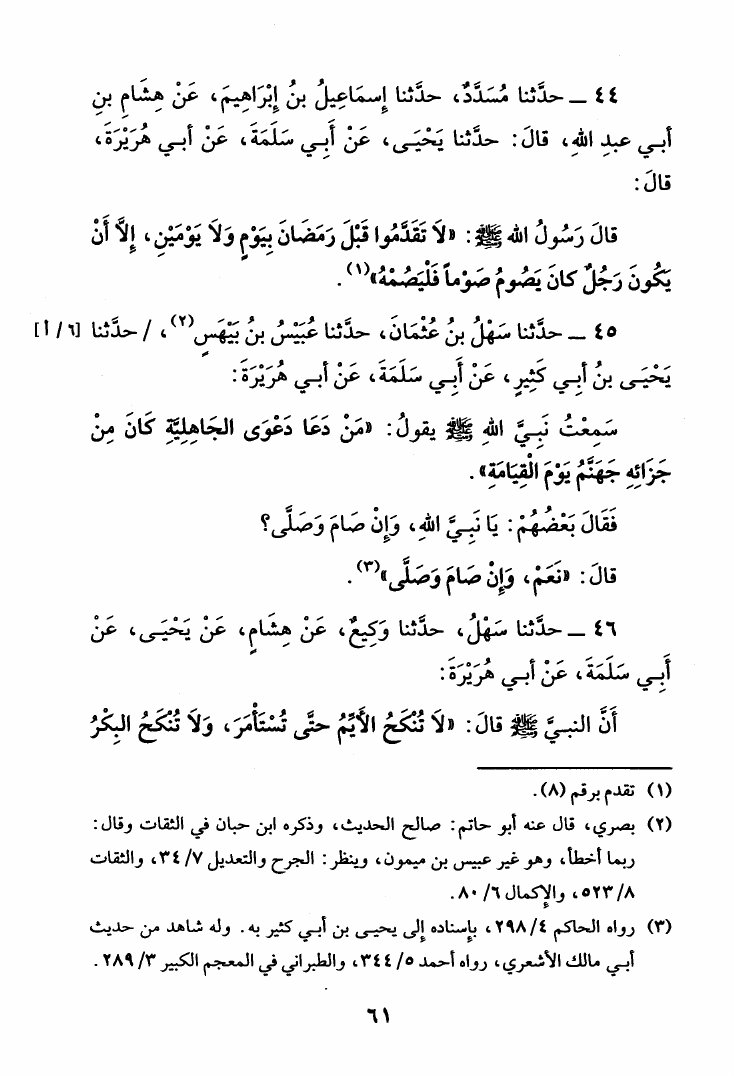 ٤٤ ــ حدَّثنا مُسَدَّدٌ، حدَّثنا إِسمَاعِيلُ بنُ إِبْرَاهِيمَ، عَنْ هِشَامِ بنِ
أبـي عبدِ اللهِ، قالَ: حدَّثنا يَحْيَـى، عَنْ أَبِـي سَلَمَةَ، عَنْ أبـي هُرَيْرَةَ،
قالَ:
قالَ رَسُولُ الله ﷺ: «لاَ تَقَدَّمُوا قَبْلَ رَمَضَانَ بِيَوْمٍ وَلاَ يَوْمَيْنِ، إِلاَّ أَنْ
يَكُونَ رَجُلٌ كانَ يَصُومُ صَوْماً فَلْيَصُمْهُ»(١).
٤٥ ــ حدَّثنا سَهْلُ بنُ عُثْمَانَ، حدَّثنا عُبَيْسُ بنُ بَيْهَسٍ(٢)، / حدَّثنا [٦/أ]
يَحْيَـى بنُ أبـي كَثِيرٍ، عَنْ أَبِـي سَلَمَةَ، عَنْ أبـي هُرَيْرَةَ:
سَمِعْتُ نَبِـيَّ اللهِ ﷺ يقولُ: «مَنْ دَعَا دَعْوَى الجَاهِلِيَّةِ كَانَ مِنْ
جَزَائِهِ جَهَنَّمُ يَوْمَ الْقِيَامَةِ».
فَقَالَ بَعْضُهُمْ: يَا نَبِـيَّ اللهِ، وَإِنْ صَامَ وَصَلَّى؟
قالَ: «نَعَمْ، وَإِنْ صَامَ وَصَلَّى»(٣).
٤٦ ــ حدَّثنا سَهْلُ، حدَّثنا وَكِيعٌ، عَنْ هِشَامٍ، عَنْ يَحْيَـى، عَنْ
أَبِـي سَلَمَةَ، عَنْ أبـي هُرَيْرَةَ:
أَنَّ النبـيَّ ﷺ قالَ: «لاَ تُنْكَحُ الأَيِّمُ حتَّى تُسْتَأْمَرَ، وَلاَ تُنْكَحُ البِكْرُ
(١) تقدم برقم (٨).
(٢) بصري، قال عنه أبو حاتم: صالح الحديث، وذكره ابن حبان في الثقات وقال:
ربما أخطأ، وهو غير عبيس بن ميمون، وينظر: الجرح والتعديل ٧/ ٣٤، والثقات
٨/ ٥٢٣، والإكمال ٦/ ٨٠.
(٣) رواه الحاكم ٤/ ٢٩٨، بإسناده إلى يحيـى بن أبـي كثير به. وله شاهد من حديث
أبـي مالك الأشعري، رواه أحمد ٥/ ٣٤٤، والطبراني في المعجم الكبير ٣/ ٢٨٩.
٦١